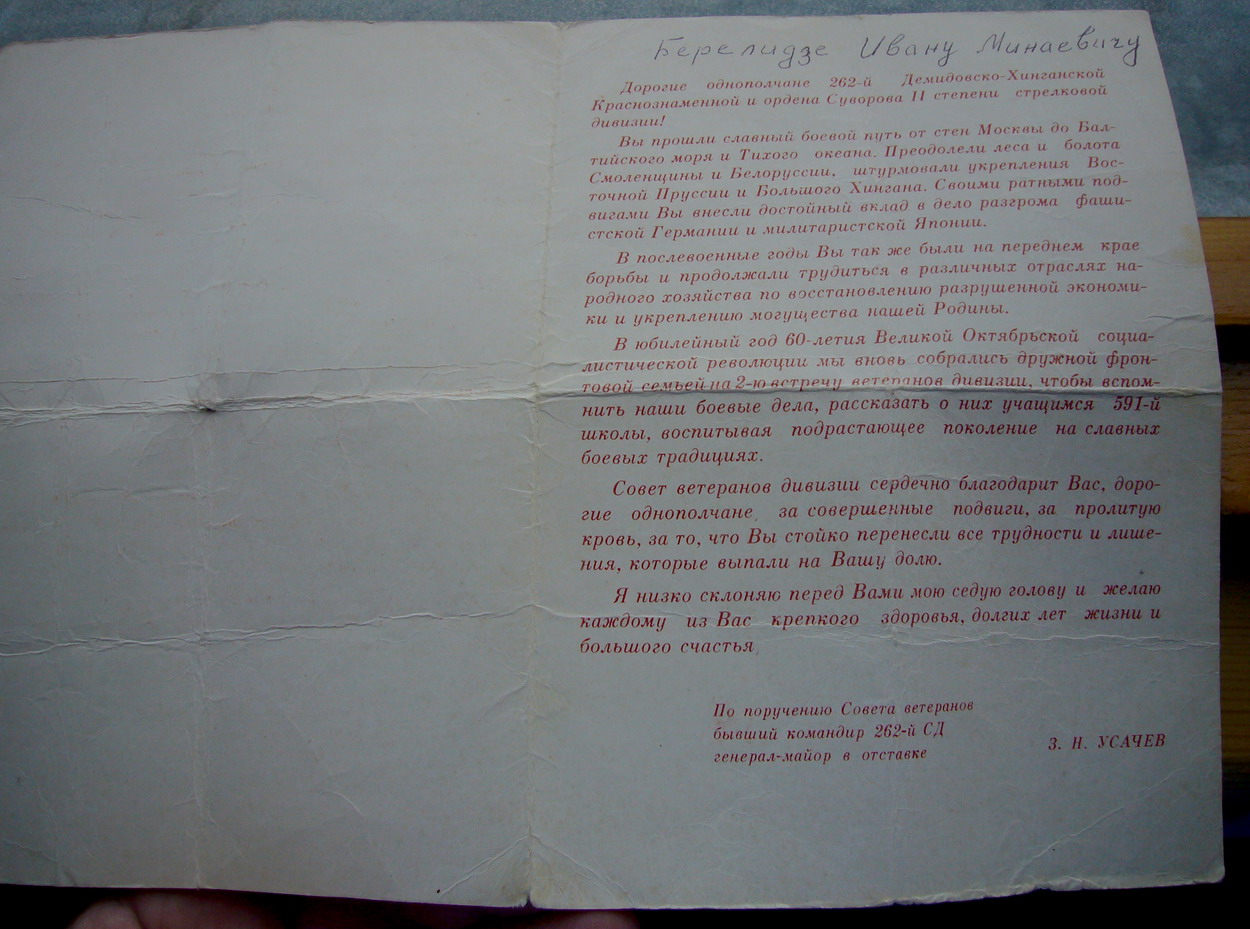 Берелидзе Ивану Минаевичу
Дорогие однополчане 262-й Демидовско-Хинганской
Краснознаменной и ордена Суворова II степени стрелковой
дивизии!
Вы прошли славный боевой путь от стен Москвы до Бал-
тийского моря и Тихого океана. Преодолели леса и болота
Смоленщины и Белоруссии, штурмовали укрепления Вос-
точной Пруссии и Большого Хингана. Своими ратными под-
вигами Вы внесли достойный вклад в дело разгрома фаши-
стской Германии и милитаристской Японии.
В послевоенные годы Вы так же были на переднем крае
борьбы и продолжали трудиться в различных отраслях на-
родного хозяйства по восстановлению разрушенной экономи-
ки и укреплению могущества нашей Родины.
В юбилейный год 60-летия Великой Октябрьской социа-
листической революции мы вновь собрались дружной фрон-
товой семьей на 2-ю встречу ветеранов дивизии, чтобы вспом-
нить наши боевые дела, рассказать о них учащимся 591-й
школы, воспитывая подрастающее поколение на славных
боевых традициях.
Совет ветеранов дивизии сердечно благодарит Вас, доро-
гие однополчане, за совершенные подвиги, за пролитую
кровь, за то, что Вы стойко перенесли все трудности и лише-
ния, которые выпали на Вашу долю.
Я низко склоняю перед Вами мою седую голову и желаю
каждому из Вас крепкого здоровья, долгих лет жизни и
большого счастья.
По поручению Совета ветеранов
бывший командир 262-й СД
генерал-майор в отставке
З. Н. УСАЧЕВ